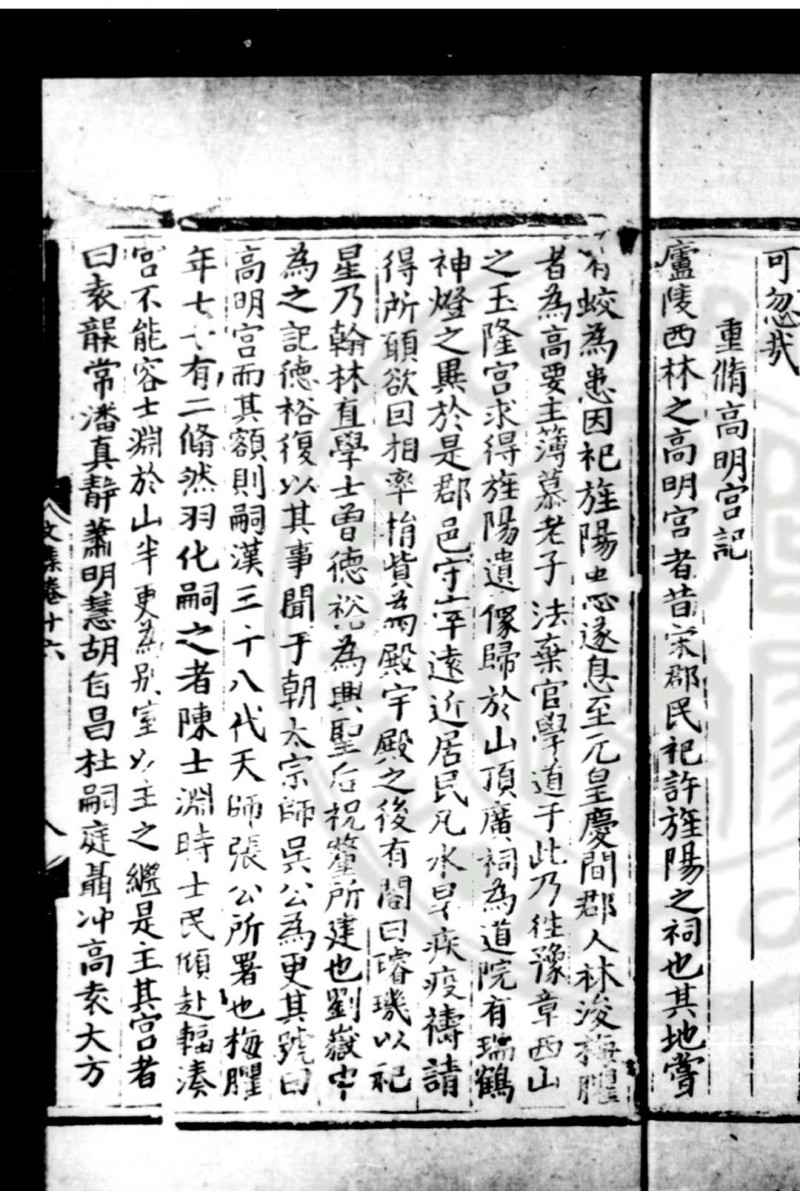 可忽哉
重脩高明宮記
廬陵西林之高明宮者昔宋郡民祀許旌陽之祠也其地嘗
有蛟為患因祀旌陽患遂息至元皇慶間郡人林浚梅臞
者為高要主簿慕老子法棄官學道于此乃徃豫章西山
之玉隆宮求得旌陽遺像歸於山頂廣祠為道院有瑞鶴
神燈之異於是郡邑守宰遠近居民凡水旱疾疫禱請
得所願欲囙相率捐貲為殿宇殿之後有閣曰璿璣以祀
星乃翰林直學士曾德裕為興聖后祝釐所建也劉嶽中
為之記德裕復以其事聞于朝太宗師吳公為更其號曰
高明宮而其額則嗣漢三十八代天師張公所署也梅臞
年七十有二翛然羽化嗣之者陳士淵時士民傾赴輻湊
宮不能容士淵於山半更為別室以主之繼是主其宮者
曰袁常潘真靜蕭明慧胡自昌杜嗣庭聶冲高袁大方
文集卷十六
八